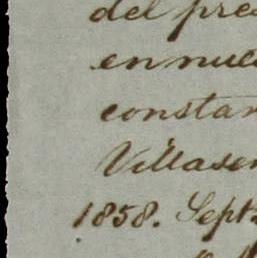 del pre
en nue
constan
Villasen
1858. Sept